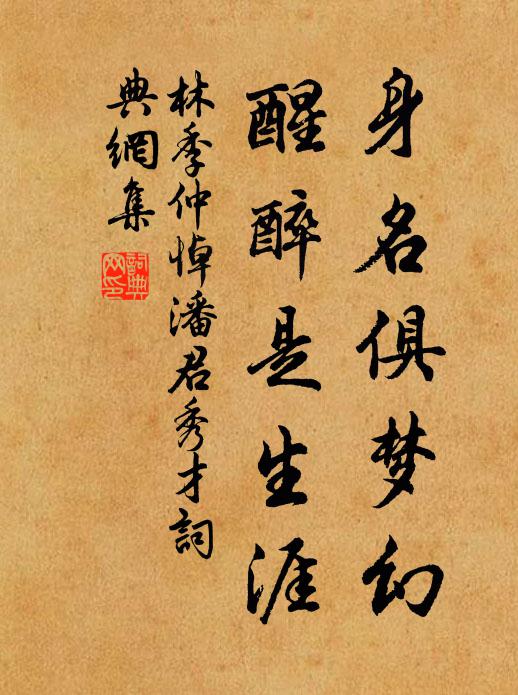 身名俱梦幻
醒醉是生涯
林季仲悼潘君秀才詞
典網集
詞典
网印